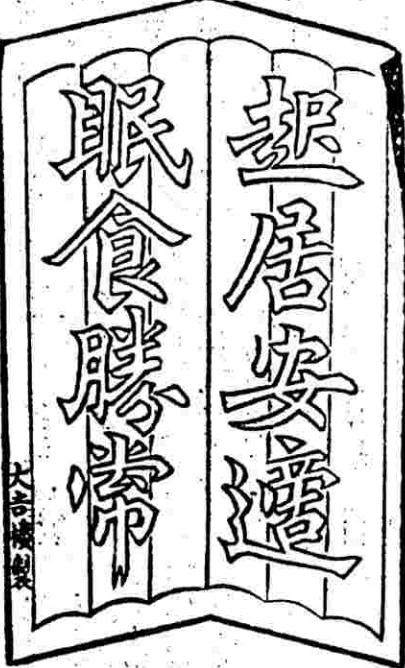 起居安適
眠食勝常
大吉樓製